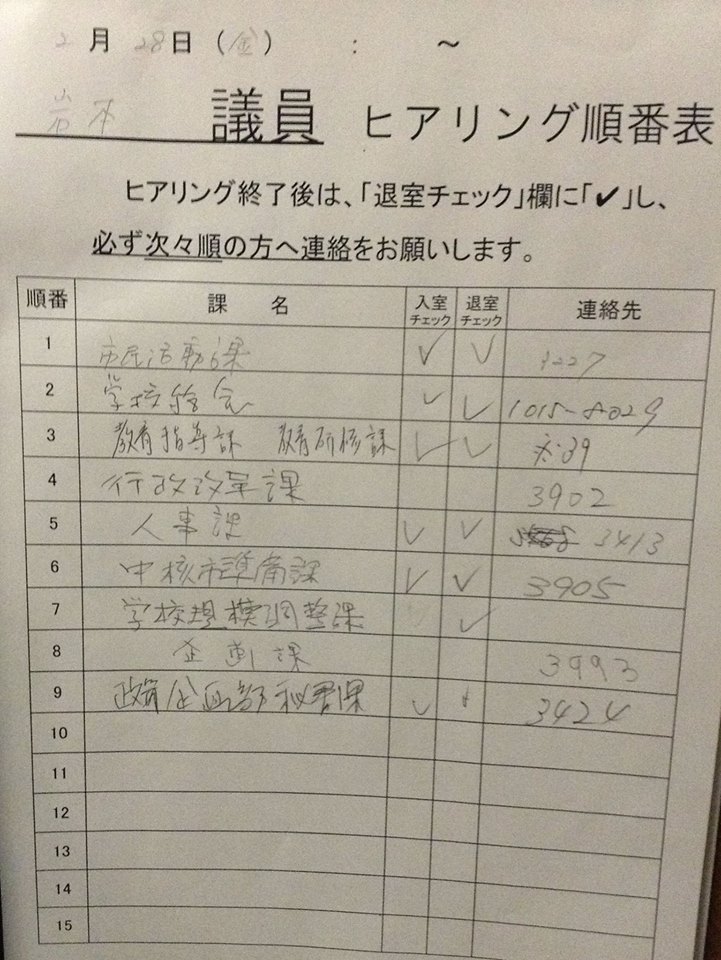 2月28日（金） : ～
岩本 議員 ヒアリング順番表
ヒアリング終了後は、「退室チェック」欄に「✔」し、
必ず次々順の方へ連絡をお願いします。
順番 課 名 入室チェック 退室チェック 連絡先
1 市民活動課 ✓ ✓ 3227
2 学校給食 ✓ ✓ 1015-8029
3 教育指導課 教育研修課 ✓ ✓
4 行政改革課 3902
5 人事課 ✓ ✓ 3413
6 中核市準備課 ✓ ✓ 3905
7 学校規模調整課 ✓
8 企画課 3993
9 政策企画部秘書課 ✓ ✓ 3424
10
11
12
13
14
15